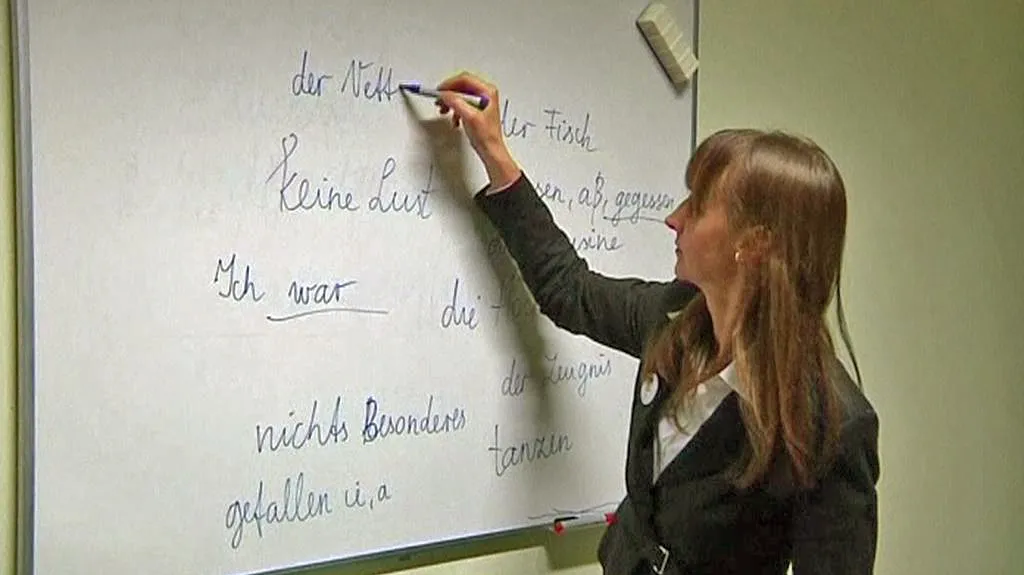 der Vett
der Fisch
keine Lust
sen, aß, gegessen
sine
Ich war
die
der Zeugnis
nichts Besonderes
tanzen
gefallen ü, a